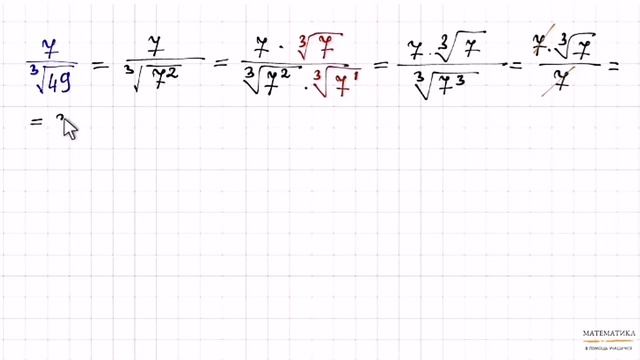 7/∛49 = 7/∛7² = 7 · ∛7/∛7² · ∛7¹ = 7 · ∛7/∛7³ = 7 · ∛7/7 =
=
МАТЕМАТИКА
В ПОМОЩЬ УЧАЩИМСЯ